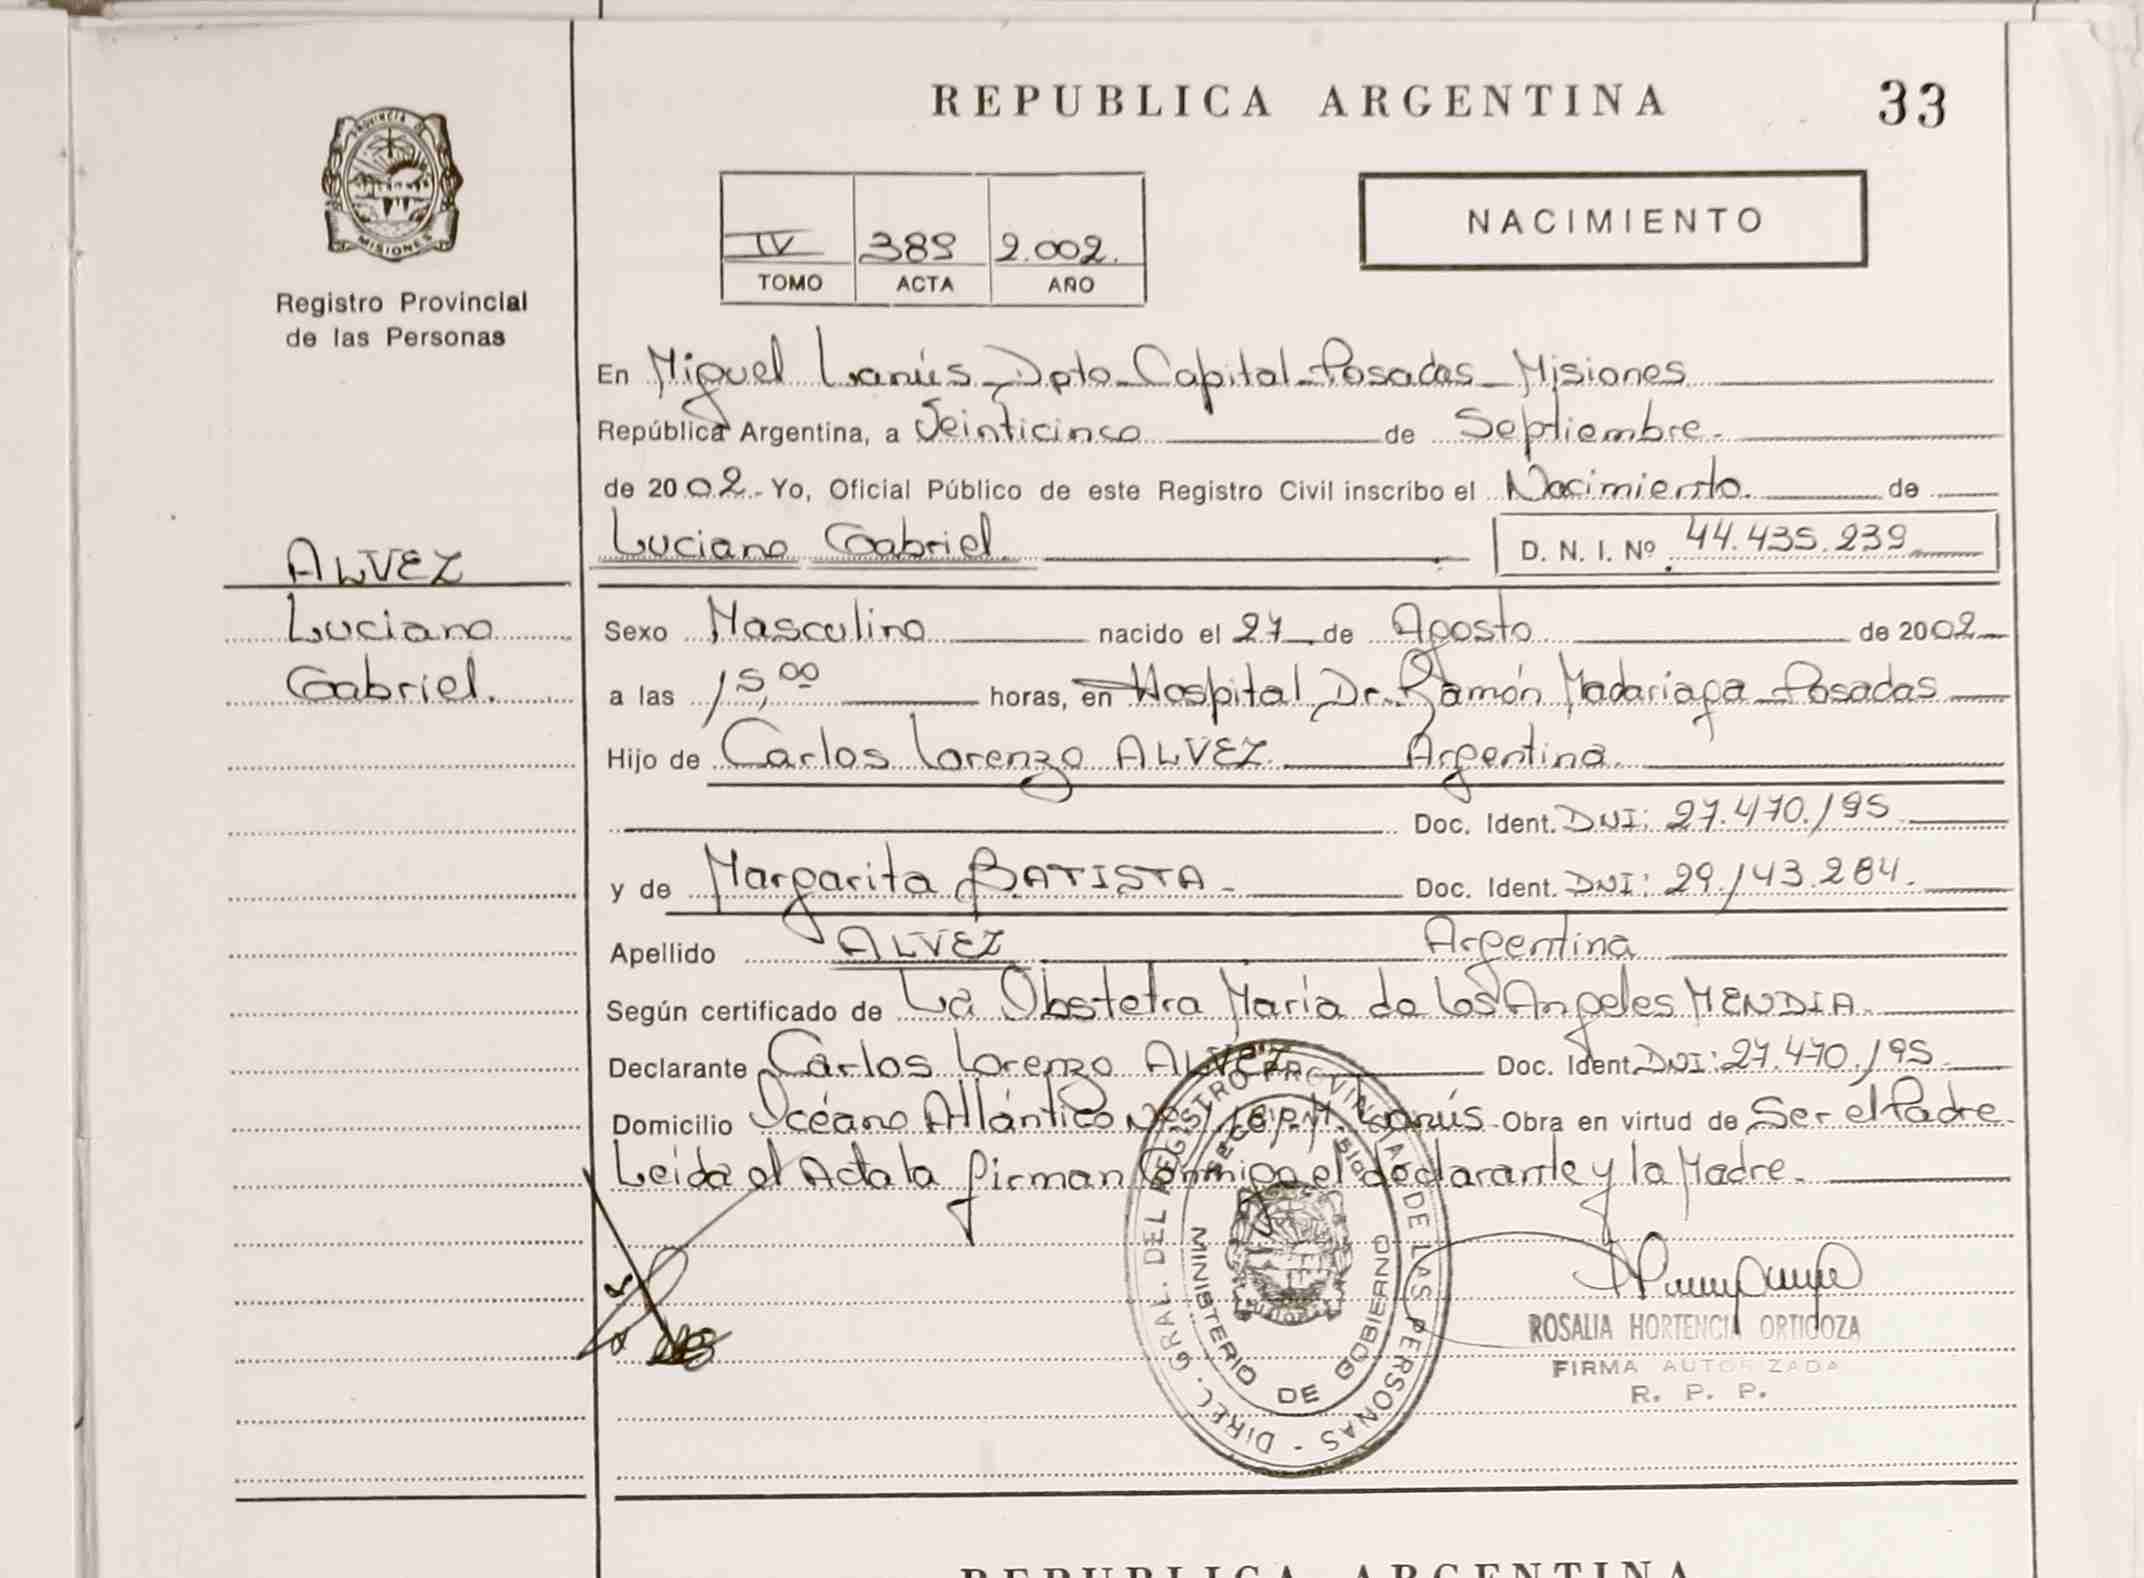 REPUBLICA ARGENTINA
33
PROVINCIA DE
MISIONES
Registro Provincial
de las Personas
IV 389 2.002.
TOMO ACTA AÑO
NACIMIENTO
En Miguel Lanús - Dpto - Capital - Posadas - Misiones
República Argentina, a Veinticinco de Septiembre.
de 2002.- Yo, Oficial Público de este Registro Civil inscribo el Nacimiento. de
Luciano Gabriel.
D. N. I. Nº 44.435.239
ALVEZ
Luciano
Gabriel.
Sexo Masculino nacido el 27 de Agosto de 2002
a las 15,00 horas, en Hospital Dr. Ramón Madariaga - Posadas
Hijo de Carlos Lorenzo ALVEZ Argentina.
Doc. Ident. DNI: 27.470.195
y de Margarita BATISTA - Doc. Ident. DNI: 29.143.284.
Apellido ALVEZ Argentina
Según certificado de La Obstetra María de los Angeles MENDIA.
Declarante Carlos Lorenzo ALVEZ Doc. Ident. DNI: 27.470.195.
Domicilio Océano Atlántico Lanús - Obra en virtud de Ser el Padre.
Leida el Acta la firman conmigo el declarante y la Madre.
DIREC. GRAL. DEL REGISTRO PROVINCIAL DE LAS PERSONAS -
MINISTERIO DE GOBIERNO
ROSALIA HORTENCIA ORTIGOZA
FIRMA AUTORIZADA
R. P. P.
REPUBLICA ARGENTINA